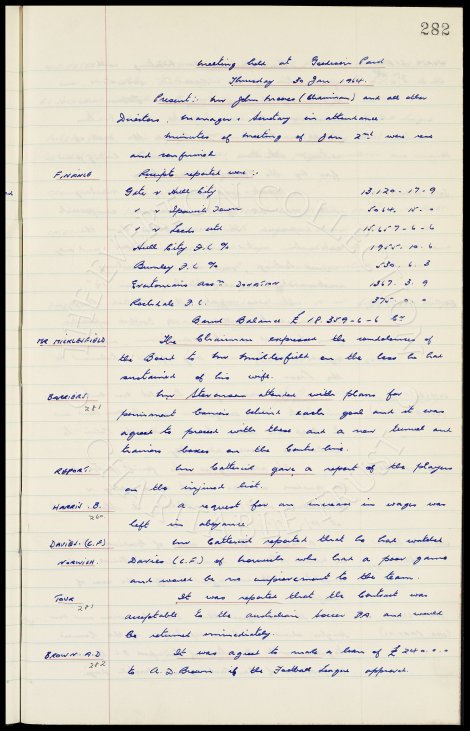 282
Meeting held at Goodison Park
Thursday 30 Jan 1964.
Present:- Mr John Moores (Chairman) and all other
Directors. Manager & Secretary in attendance
Minutes of meeting of Jan 2nd were read
and confirmed
FINANCE Receipts reported were:-
Gate v Hull City 13.120-17-9
" v Ipswich Town 5064. 15. 0
" v Leeds Utd 15.657-6-6
Hull City F.C. % 1955. 10. 6
Burnley F.C % 530. 6. 3
Evertonians Assn. DONATION 1367. 3. 9
Rochdale F.C. 375. 0. 0
Bank Balance £ 18.359-6-6 Cr
MR MICKLESFIELD The Chairman expressed the condolences of
the Board to Mr Micklesfield on the loss he had
sustained of his wife.
BARRIERS. 281 Mr Stevenson attended with plans for
permanent barriers behind each goal and it was
agreed to proceed with these and a new tunnel and
trainers boxes on the Centre line.
REPORT. Mr Catterick gave a report of the players
on the injured list.
HARRIS. B. 260 A request for an increase in wages was
left in abeyance.
DAVIES. (G.F) NORWICH. Mr Catterick reported that he had watched
Davies (G.F.) of Norwich who had a poor game
and would be no improvement to the team.
TOUR 281 It was reported that the Contract was
acceptable to the Australian Soccer F.A. and would
be returned immediately.
BROWN. A.D 282 It was agreed to make a loan of £240.0.0
to A.D. Brown if the Football League approved.
THE EVERTON COLLECTION
CHARITABLE TRUST